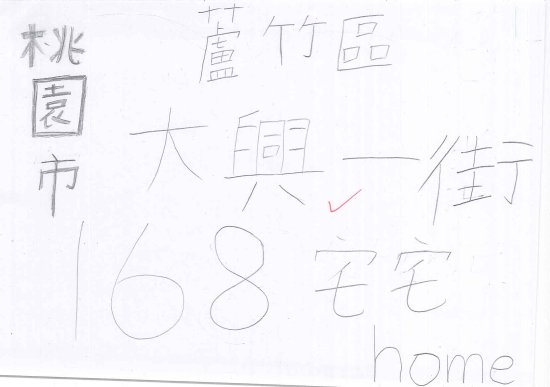 桃園市
蘆竹區
大興一街
168宅宅
home